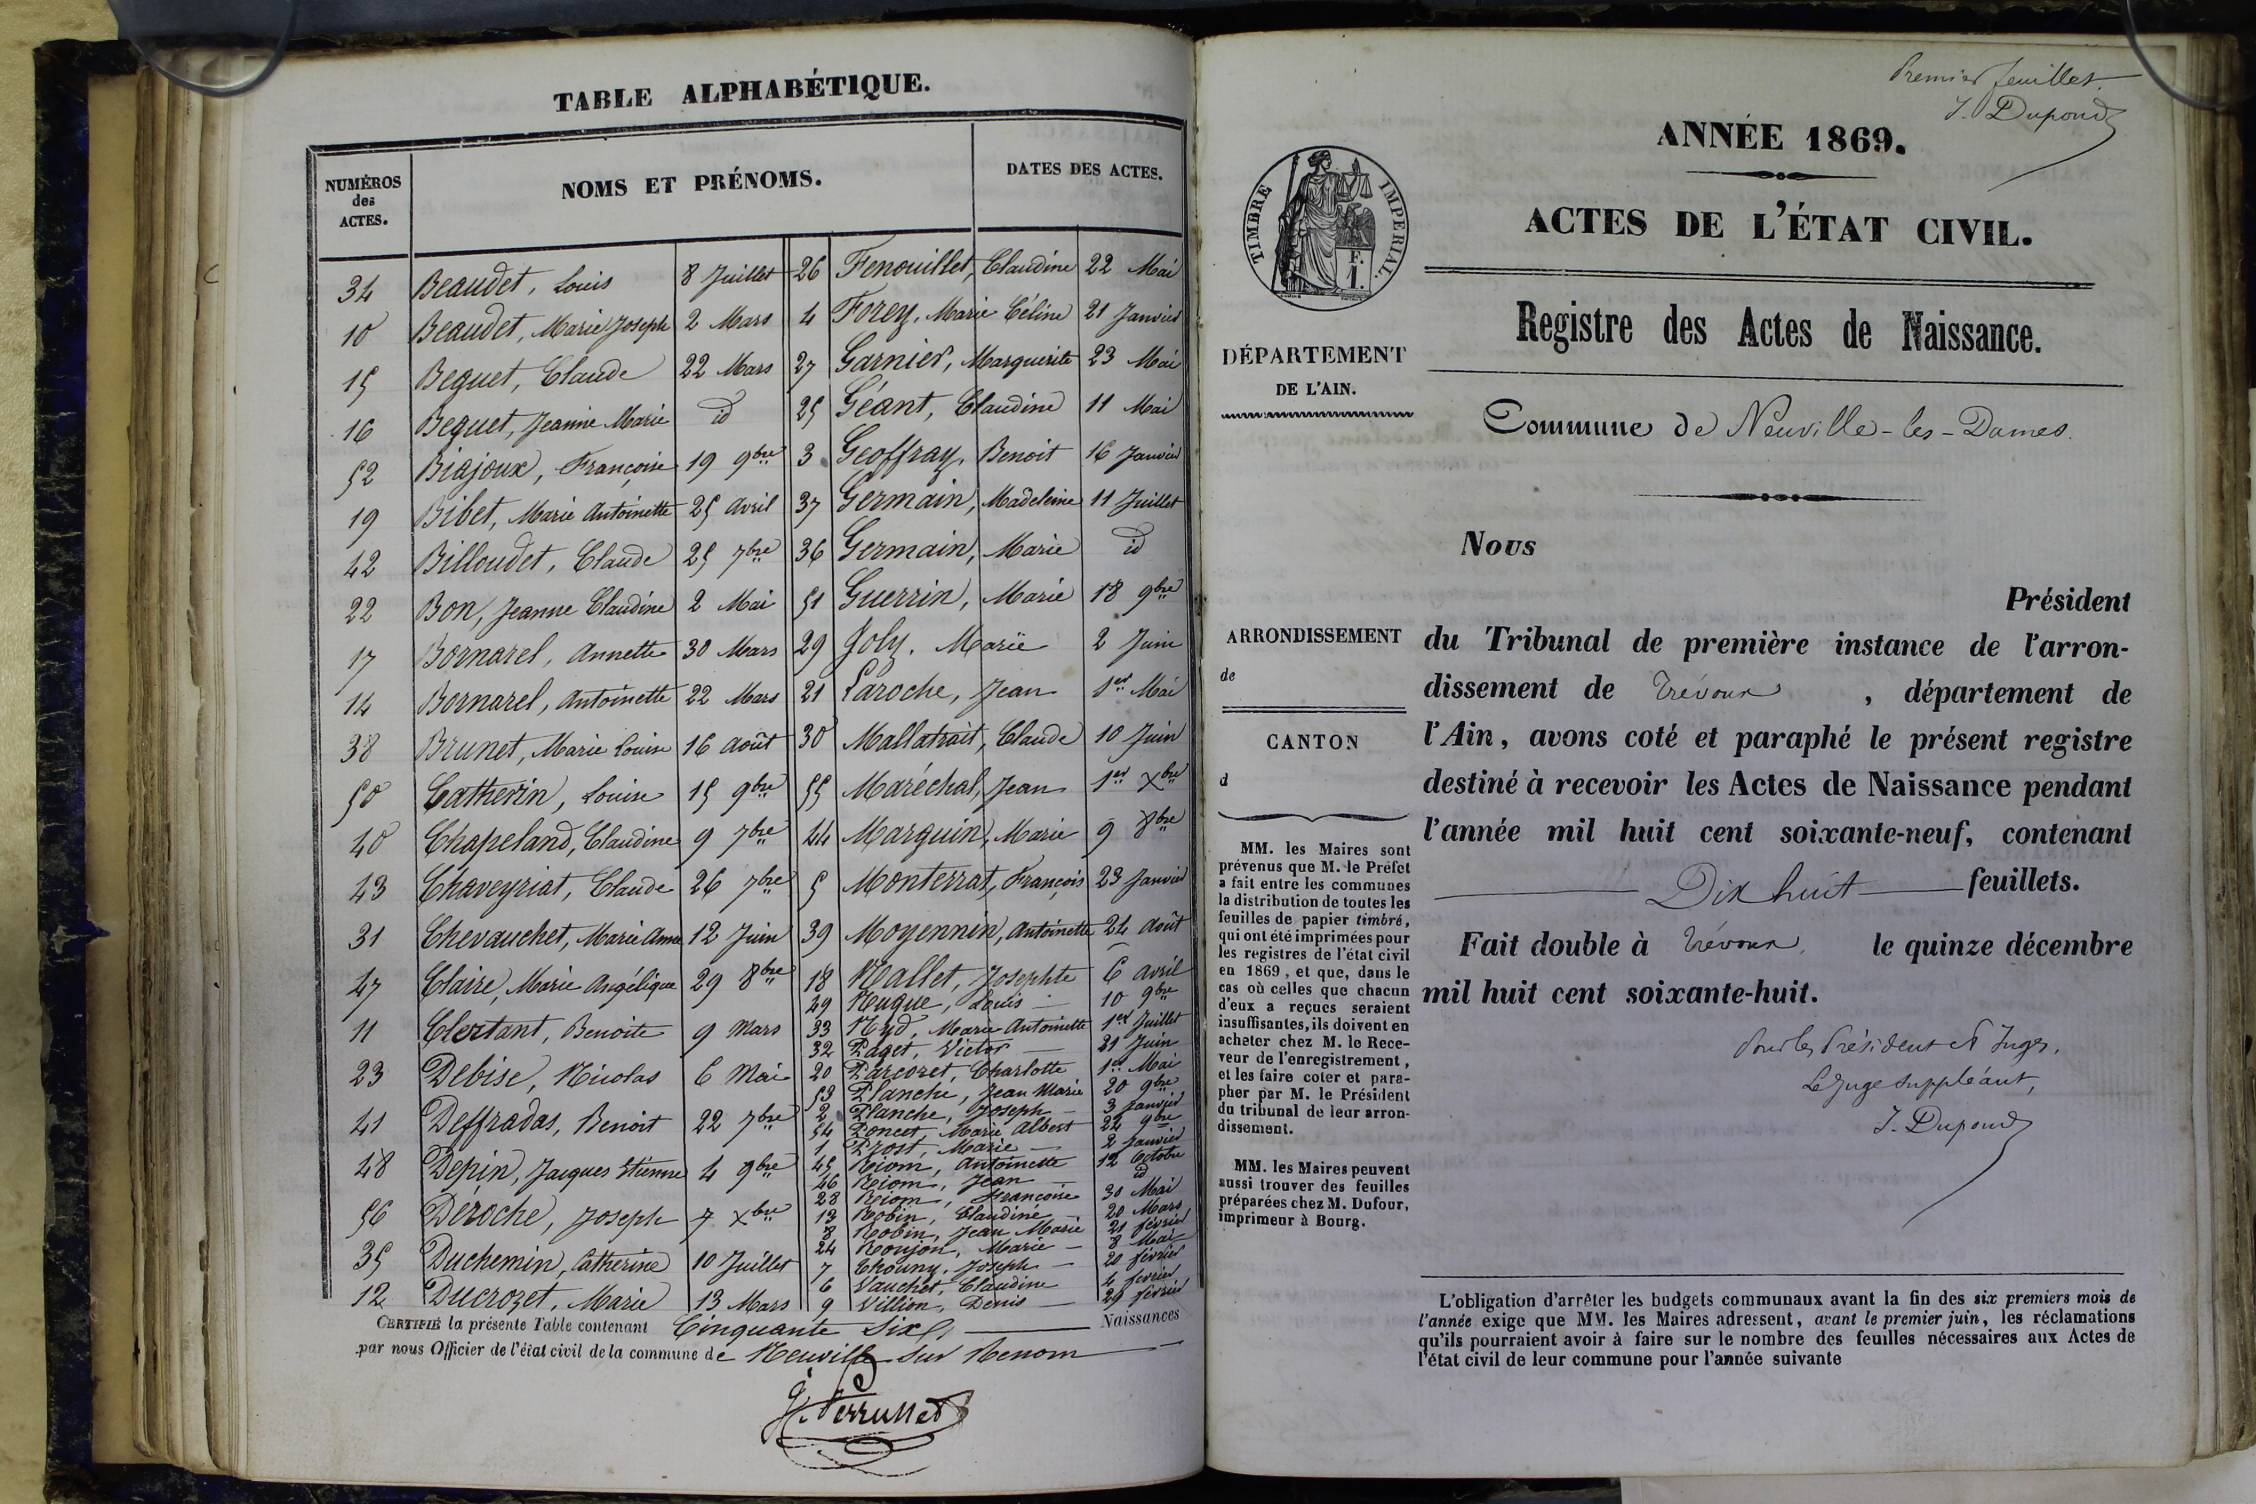 TABLE ALPHABÉTIQUE.
NUMÉROS
des
ACTES.
NOMS ET PRÉNOMS.
DATES DES ACTES.
34 Beaudet, Louis 8 Juillet
10 Beaudet, Marie Joseph 2 Mars
15 Bequet, Claude 22 Mars
16 Bequet, Jeanne Marie id
52 Biajoux, Françoise 19 9bre
19 Bibet, Marie Antoinette 25 avril
42 Billoudet, Claude 25 7bre
22 Bon, Jeanne Claudine 2 Mai
17 Bornarel, Annette 30 Mars
14 Bornarel, Antoinette 22 Mars
38 Brunet, Marie Louise 16 août
50 Catherin, Louise 15 9bre
40 Chapeland, Claudine 9 7bre
43 Chaveyriat, Claude 26 7bre
31 Chevauchet, Marie Anne 12 Juin
47 Claire, Marie Angélique 29 8bre
11 Clertant, Benoite 9 Mars
23 Debise, Nicolas 6 Mai
41 Deffradas, Benoit 22 7bre
48 Depin, Jacques Etienne 4 9bre
56 Déroche, Joseph 7 Xbre
35 Duchemin, Catherine 10 Juillet
12 Ducrozet, Marie 13 Mars
26 Fenouillet, Claudine 22 Mai
4 Forey, Marie Céline 21 Janvier
27 Garnier, Marguerite 23 Mai
25 Géant, Claudine 11 Mai
3 Geoffray, Benoit 16 Janvier
37 Germain, Madeleine 11 Juillet
36 Germain, Marie id
51 Guerrin, Marie 18 9bre
29 Joly, Marie 2 Juin
21 Laroche, Jean 1er Mai
30 Mallatrait, Claude 10 Juin
55 Maréchal, Jean 1er Xbre
44 Marguin, Marie 9 8bre
5 Monterrat, François 23 Janvier
39 Moyennin, Antoinette 24 août
18 Nallet, Josephte 6 avril
49 Nugue, Louis 10 9bre
33 Nyd, Marie Antoinette 1er Juillet
32 Paget, Victor 21 Juin
20 Parcoret, Charlotte 1er Mai
53 Planche, Jean Marie 20 9bre
2 Planche, Joseph 3 Janvier
54 Poncet, Marie Albert 22 9bre
1 Prost, Marie 2 Janvier
45 Riom, Antoinette 12 Octobre
46 Riom, Jean id
28 Riom, Françoise 30 Mai
13 Robin, Claudine 20 Mars
8 Robin, Jean Marie 21 février
24 Roujon, Marie 8 Mai
7 Chouny, Joseph 20 février
6 Vauchet, Claudine 4 février
9 Villion, Denis 29 février
CERTIFIÉ la présente Table contenant Cinquante Six Naissances
par nous Officier de l'état civil de la commune de Neuville sur Renom
J. Perrusset
Premier feuillet.
J. Dupond
ANNÉE 1869.
ACTES DE L'ÉTAT CIVIL.
TIMBRE IMPÉRIAL.
F.
1.
Registre des Actes de Naissance.
DÉPARTEMENT
DE L'AIN.
Commune de Neuville-les-Dames.
Nous
Président
du Tribunal de première instance de l'arron-
dissement de Trévoux, département de
l'Ain, avons coté et paraphé le présent registre
destiné à recevoir les Actes de Naissance pendant
l'année mil huit cent soixante-neuf, contenant
Dix huit feuillets.
Fait double à Trévoux, le quinze décembre
mil huit cent soixante-huit.
Pour les Président et Juges,
Le Juge Suppléant,
J. Dupond
ARRONDISSEMENT
de
CANTON
d
MM. les Maires sont
prévenus que M. le Préfet
a fait entre les communes
la distribution de toutes les
feuilles de papier timbré,
qui ont été imprimées pour
les registres de l'état civil
en 1869, et que, dans le
cas où celles que chacun
d'eux a reçues seraient
insuffisantes, ils doivent en
acheter chez M. le Rece-
veur de l'enregistrement,
et les faire coter et para-
pher par M. le Président
du tribunal de leur arron-
dissement.
MM. les Maires peuvent
aussi trouver des feuilles
préparées chez M. Dufour,
imprimeur à Bourg.
L'obligation d'arrêter les budgets communaux avant la fin des six premiers mois de
l'année exige que MM. les Maires adressent, avant le premier juin, les réclamations
qu'ils pourraient avoir à faire sur le nombre des feuilles nécessaires aux Actes de
l'état civil de leur commune pour l'année suivante